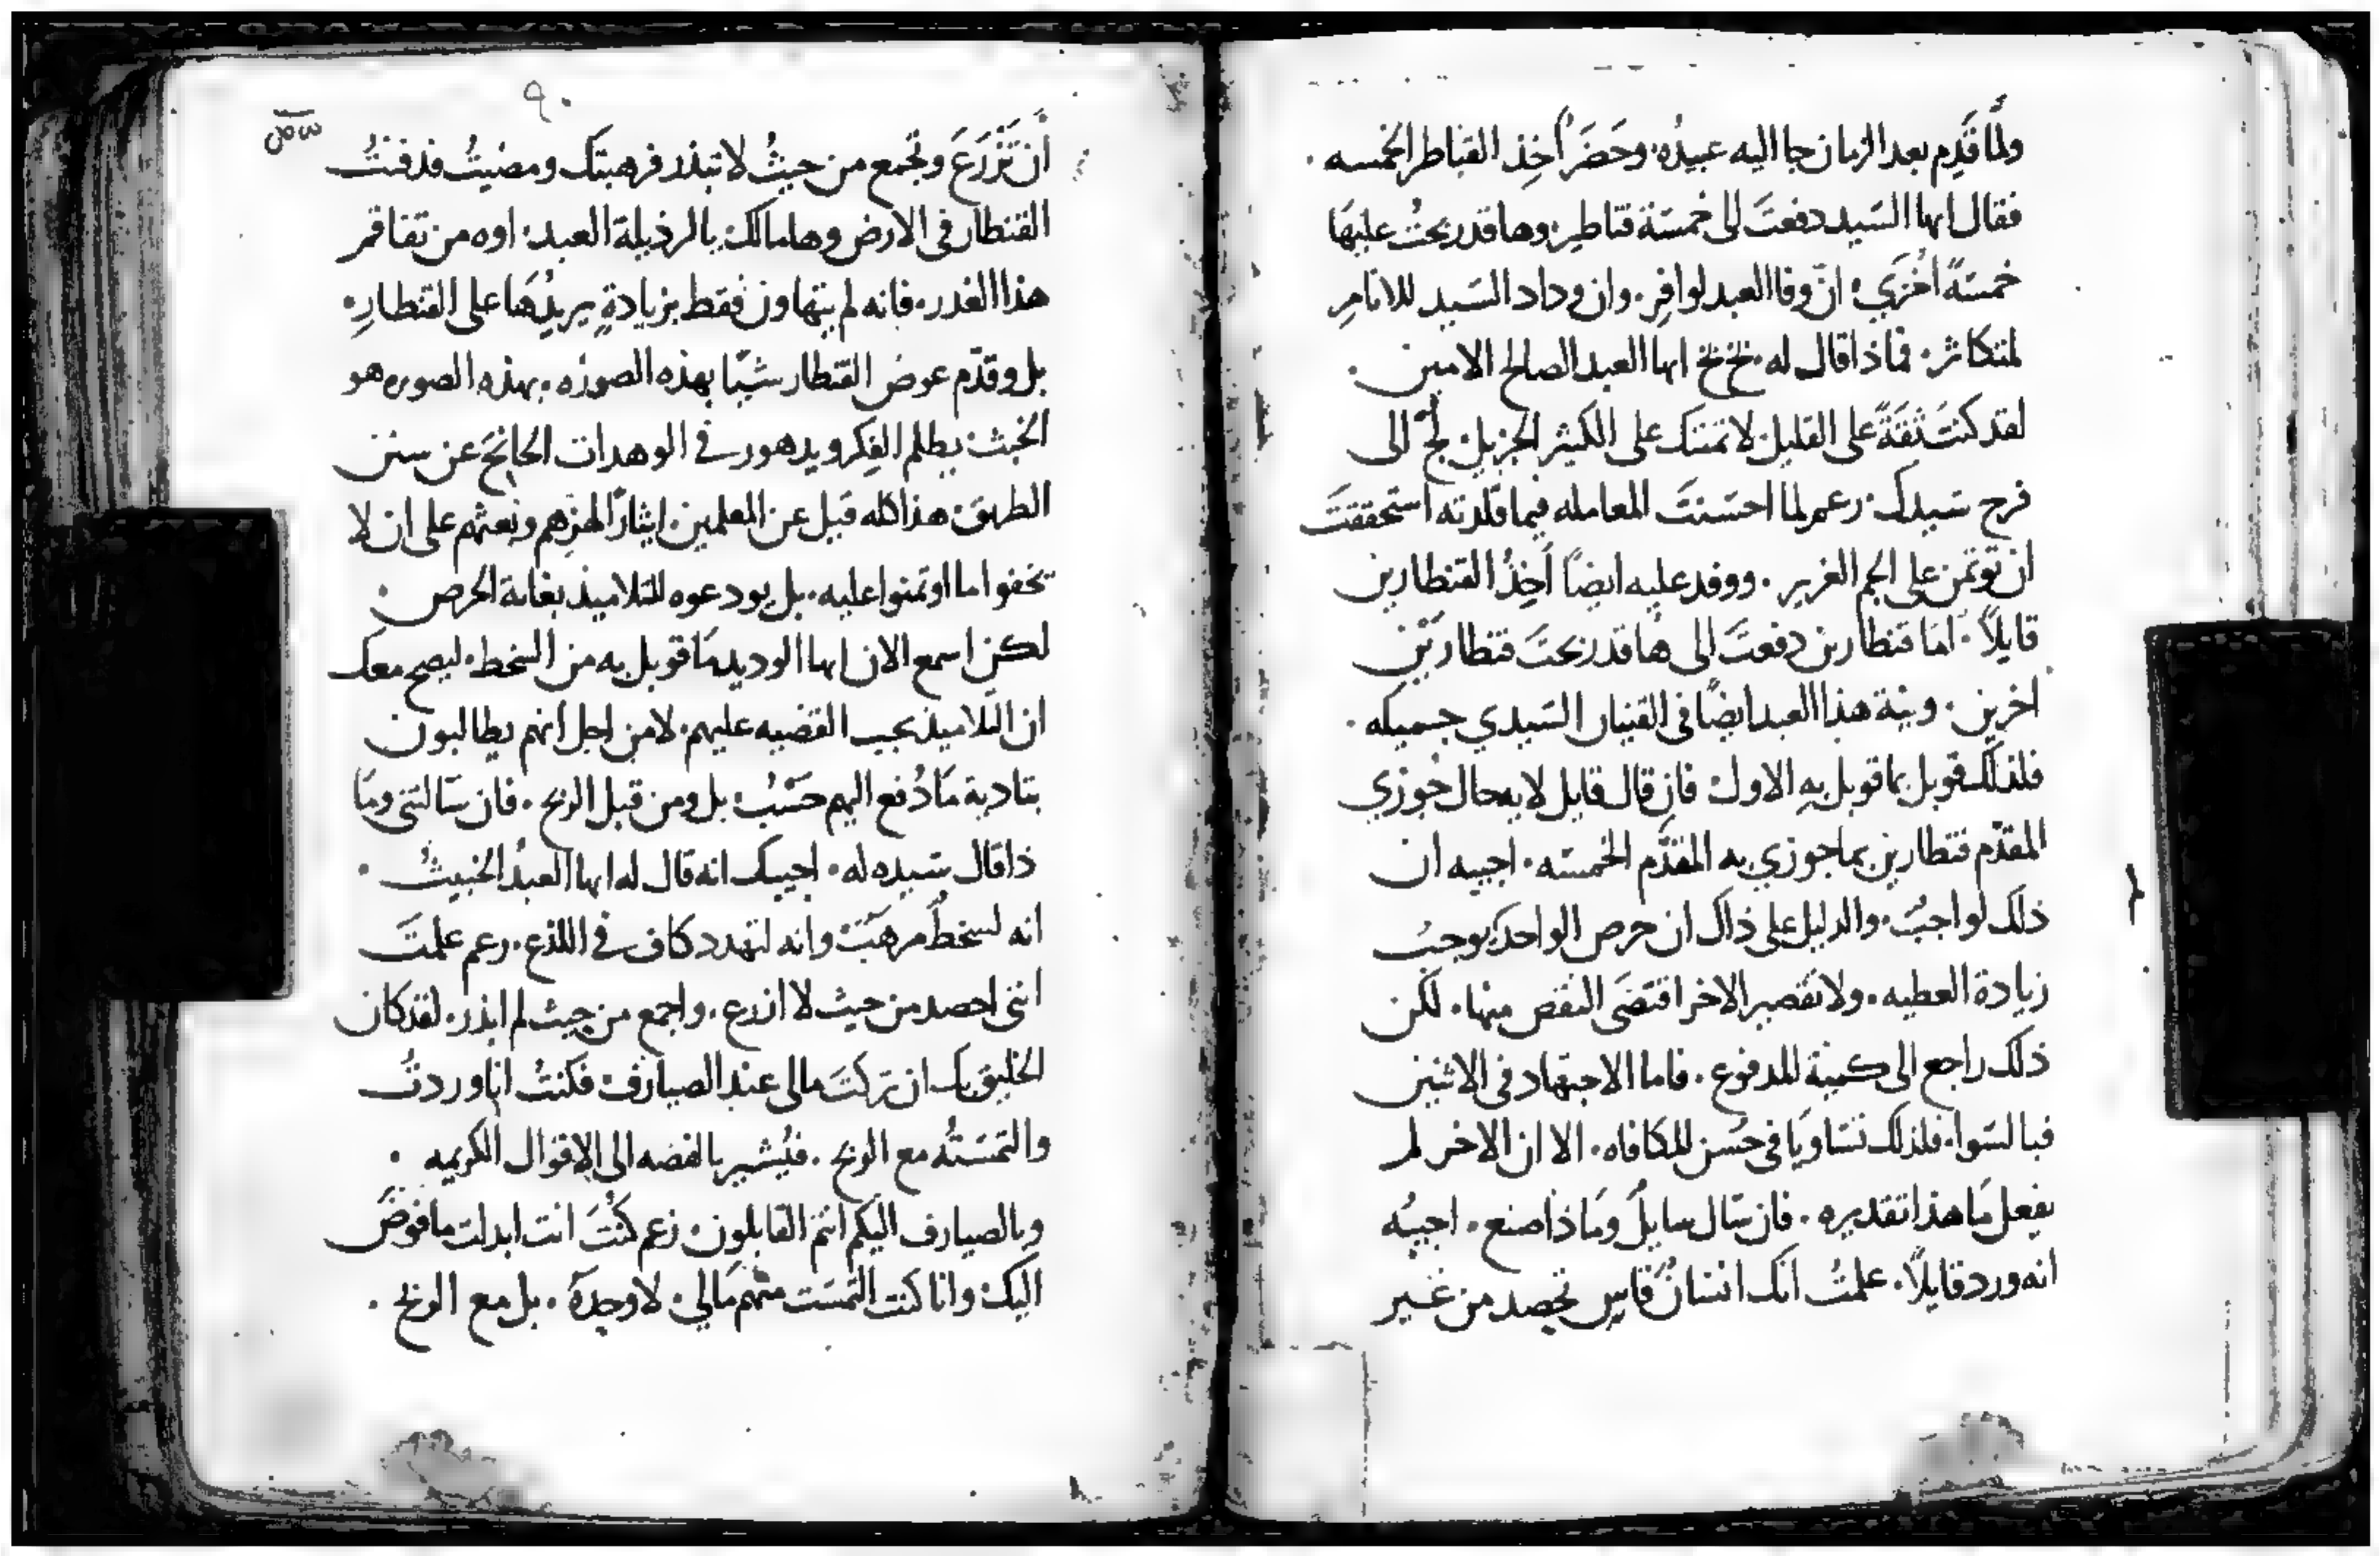 ولمَّا قَدِم بعد الزمان جا اليه عبيدُه، وحَضَر آخِذ القناطر الخمسه .
فقال ايها السَيد دفعتَ لى خمسَة قناطِر، وها قد ربحتُ عليهَا
خمسَةً اُخرَي، انّ وفا العبد لوافِر . وان وداد السَيد للانامِ
لمتكاثر . فماذا قال له، بَخ بخ ايها العبد الصالح الامين .
لقد كنتَ ثقَةً على القليل، لاتمنتك على الكثير الجزيل، لُج الى
فرح سَيدك . زعم لما احسَنتَ المعامله فيما قلّدته استحققتَ
ان تؤتمن على الجم الغزير . ووفد عليه ايضاً آخِذُ القنطارين
قايلاً . امَا قنطارين دفعتَ الى هَا قد ربحتُ قنطارَيْن
اخرين . ونية هذا العبد ايضًا فى القنيان السَيدي جسميكه .
فلذلك قوبل بما قوبل بهِ الاول، فان قال قايل لايه حال جُوزي
المقدّم قنطارين بما جوزي به المقدّم الخمسَه . اجيبه ان
ذلك لواجبٌ . والدليل على ذاك ان حرص الواحد يوجبُ
زيادة العطيه . ولا تقصير الاخر اقتضَى النقص منها . لكن
ذلك راجع الى كمية المدفوع . فاما الاجتهاد فى الاثنين
فبالسَوا، فلذلك تسَاويَا فى حسْن المكافاه . الا ان الاخر لم
يفعل مَا هذا تقديره . فان سَال سايلٌ ومَاذا صنع . اجيبُه
انه ورد قايلاً . علمتُ انك انسَانٌ قاسٍ تحصد من غير
٩٠
أن تَزْرَعَ وتجمع من حيثُ لا تبذر فرهبتك ومضيتُ فدفنتُ
القنطار فى الارض وها مالك، يالرذيلة العبد، اوه من تفاقم
هذا الغدر . فانه لم يتهاون فقط بزيادةٍ يريدُهَا على القنطارِ .
بل وقدّم عوض القنطار سَبّا بهذه الصوره . بهذه الصوره هو
الخبث، يظلم الفِكر ويدهور فى الوهدات الجانحَ عن سنن
الطريق، هذا كله قيل عن المعلمين، ايثارًا لهزهم وبعثهم على ان لا
يخفوا ما اوتمنوا عليه . بل يودعوه للتلاميذ بغاية الحرص .
لكن اسمع الان ايها الوديد مَا قوبل به من السخط، ليصح معك
ان التلاميذ يجب القضيه عليهم، لا من اجل انهم يطالبون
بتادية مَا دُفع اليهم حسَبْ، بل ومن قبل الربح . فان سَالتنى ومَا
ذا قال سَيده له . اجيبك انه قال له ايها العبدُ الخبيثُ .
انه لسخطٌ مرهبٌ وانه لتهدد كاف فى اللذع . زعم علمتَ
اننى احصد من حيث لا ازرع . واجمع من حيث لم ابذر، لقد كان
الخليق بك ان تركتَ مالى عند الصيارف، فكنتُ انا وردتُ
والتمسَتُه مع الربح . فيُشير بالفضه الى الاقوال الكريمه .
وبالصيارف اليكم انتم القابلون، زعم كُنْتَ انت ابدلت ما فوّضَ
اليك، وانا كنت التمسَت منهم مَالي، لا وحدَهُ . بل مع الربح .